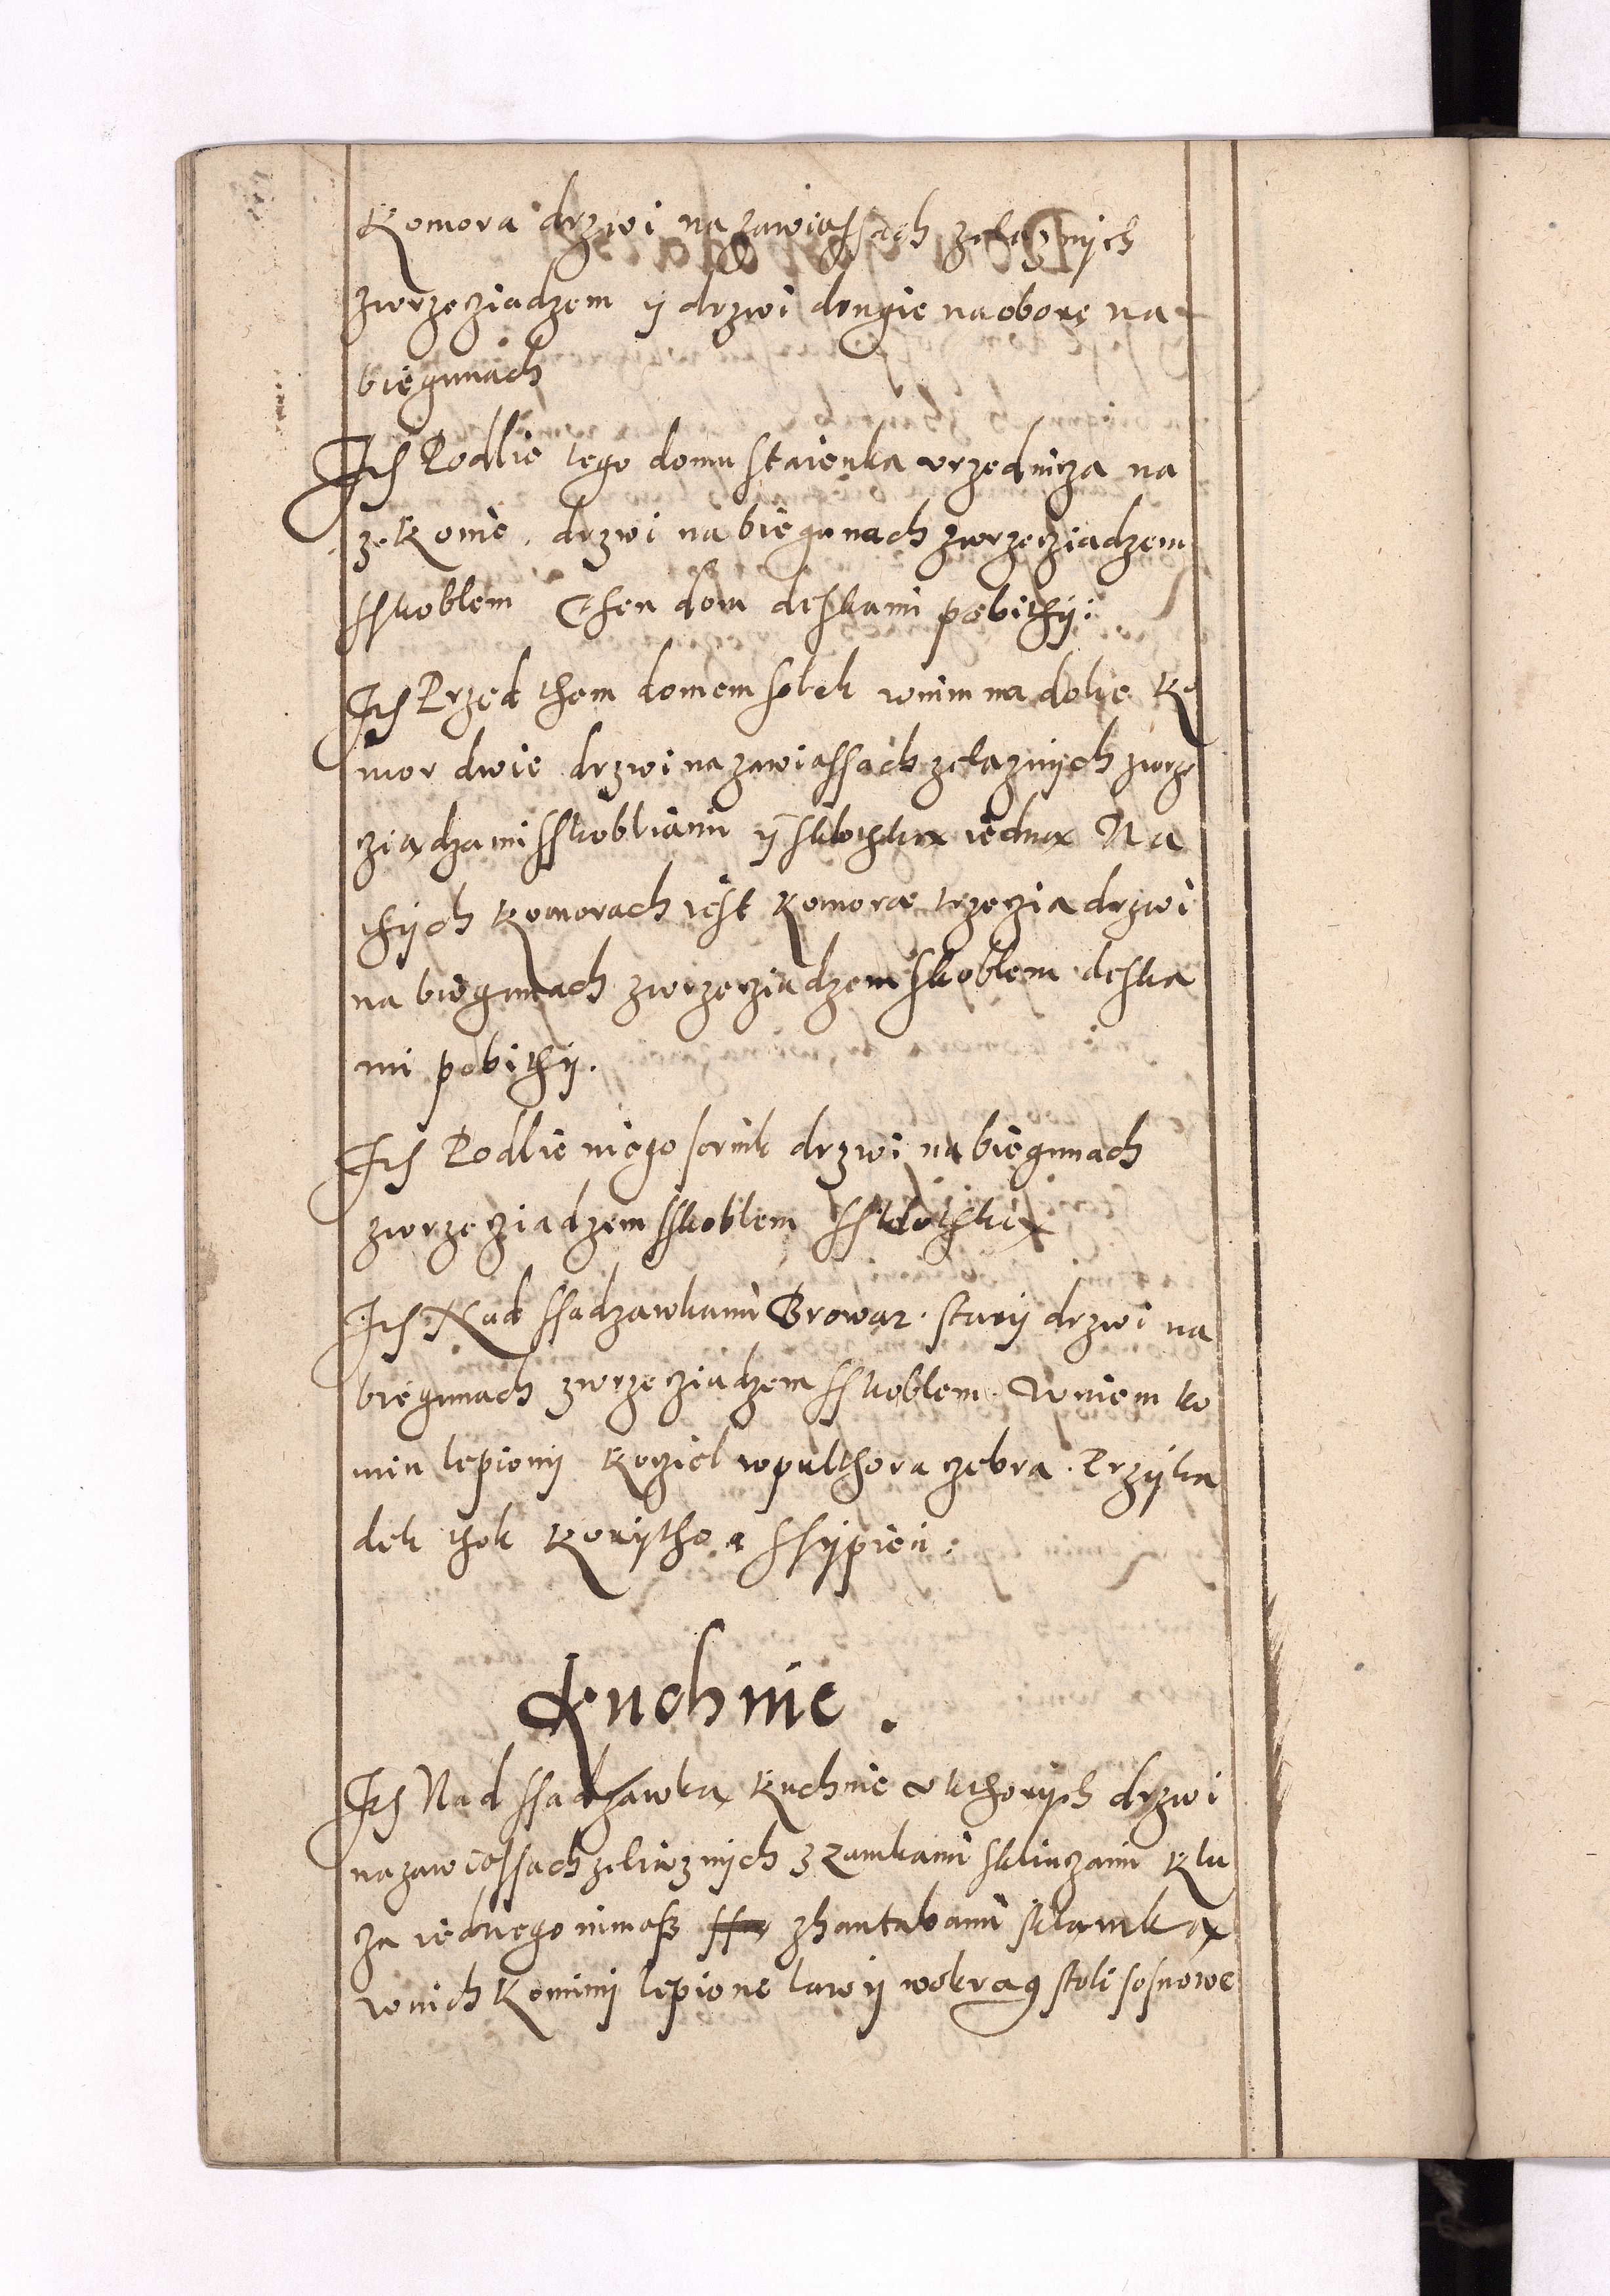 Komora drzwi na zawiassach zelaznÿch
zwrzecziadzem ÿ drzwi drugie na oborę na
biegunach
Jts Podlie tego domu staienka vrzednicza na
ze konie, drzwi na biegunach zwrzecziadzem
sskoblem Then dom deskami pobithÿ:
Jts Przed them domem solek wnim na dolie Ko
mor dwie drzwi na zawiassach zelaznÿch zwrze
cziądzami sskobliami ÿ sklothką iedną Na
thÿch komorach iest komora trzeczia drzwi
na biegunach zwrzecziadzem skoblem deska
mi pobithÿ.
Jts Podlie niego sernik drzwi na biegunach
zwrzecziadzem sskoblem ssklothką
Jts Nad ssadzawkami Browar starÿ drzwi na
biegunach zwrzecziadzem sskoblem. Wniem ko
min lepionÿ Kocziel wpulthora czebra. Przÿka
dek thok korÿtho a ssÿpien:
Kuchnie.
Jts Nad ssadzawką Kuchnie v kthorÿch drzwi
na zawiassach zeliaznÿch z zamkami skliuczami klu
cza iednego nimasz zhantabami sklamką
wnich kominÿ lepione lawÿ wokrąg stoli sosnowe